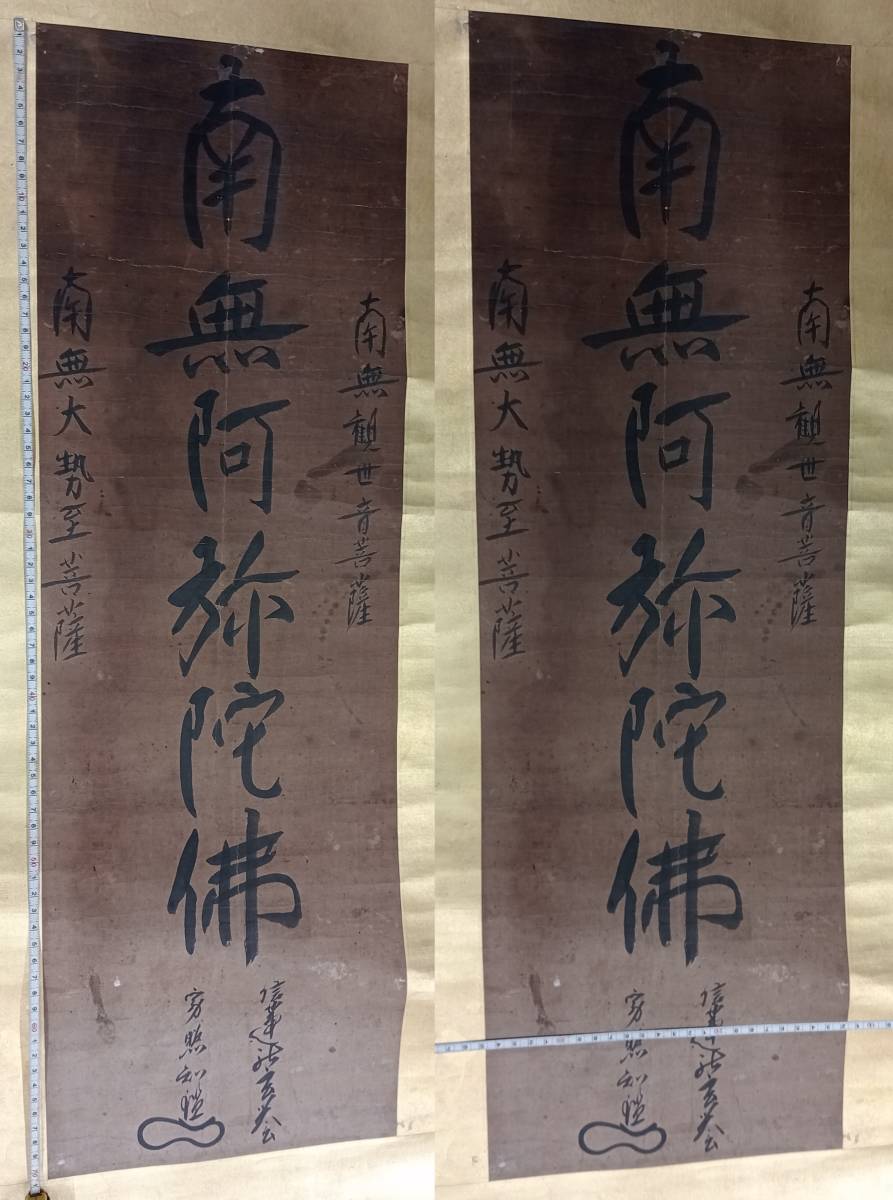 南無觀世音菩薩
南無阿弥陀佛
南無大勢至菩薩
南無觀世音菩薩
南無阿弥陀佛
南無大勢至菩薩